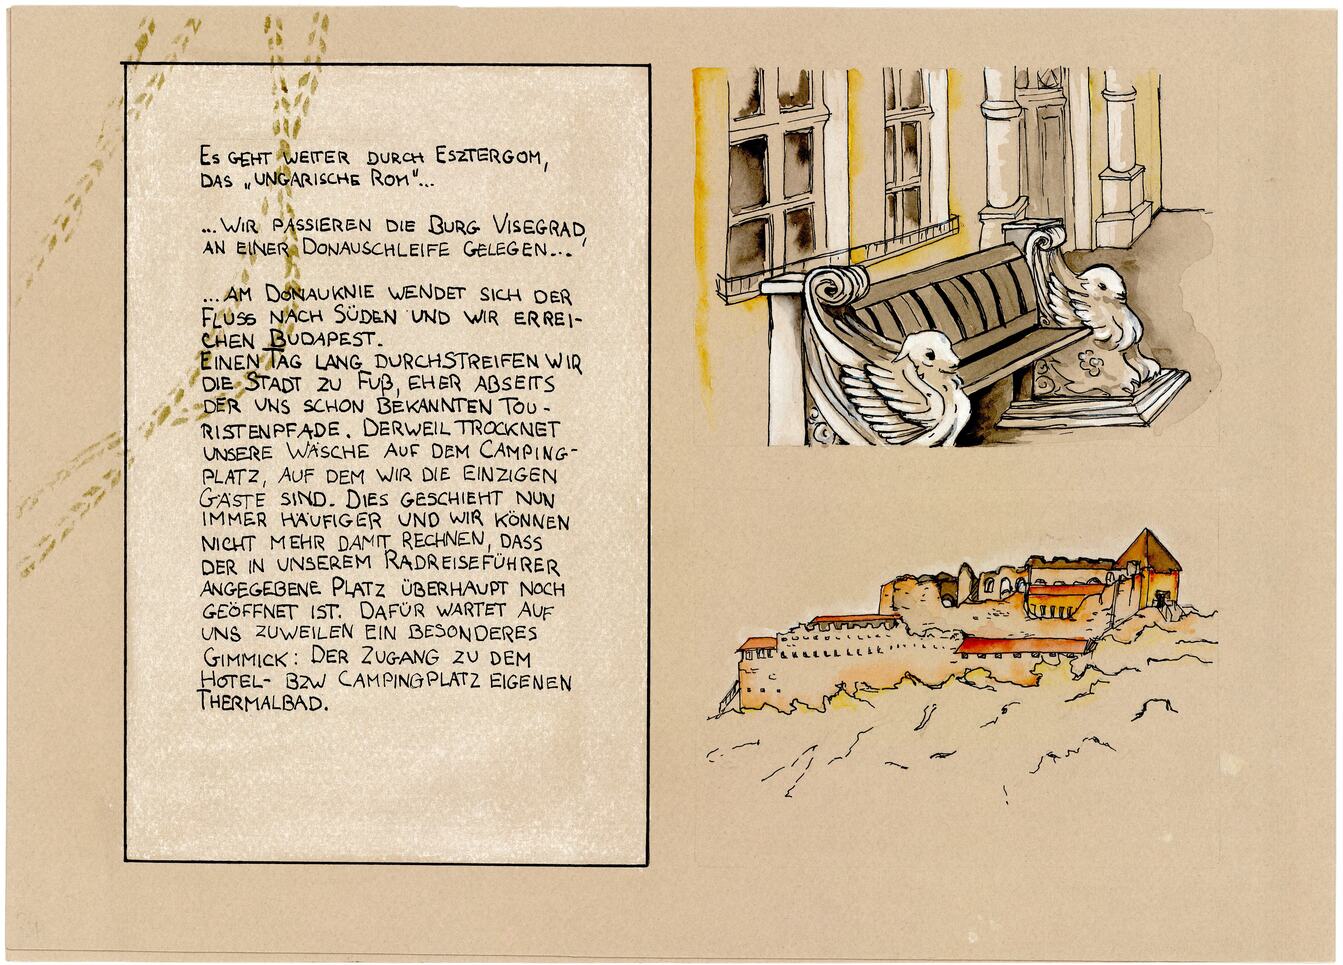 Es geht weiter durch Esztergom,
das „ungarische Rom"...
...Wir passieren die Burg Visegrad,
an einer Donauschleife gelegen...
...am Donauknie wendet sich der
Fluss nach Süden und wir errei-
chen Budapest.
Einen Tag lang durchstreifen wir
die Stadt zu Fuß, eher abseits
der uns schon bekannten Tou-
ristenpfade. Derweil trocknet
unsere Wäsche auf dem Camping-
platz, auf dem wir die einzigen
Gäste sind. Dies geschieht nun
immer häufiger und wir können
nicht mehr damit rechnen, dass
der in unserem Radreiseführer
angegebene Platz überhaupt noch
geöffnet ist. Dafür wartet auf
uns zuweilen ein besonderes
Gimmick: Der Zugang zu dem
Hotel- bzw Campingplatz eigenen
Thermalbad.